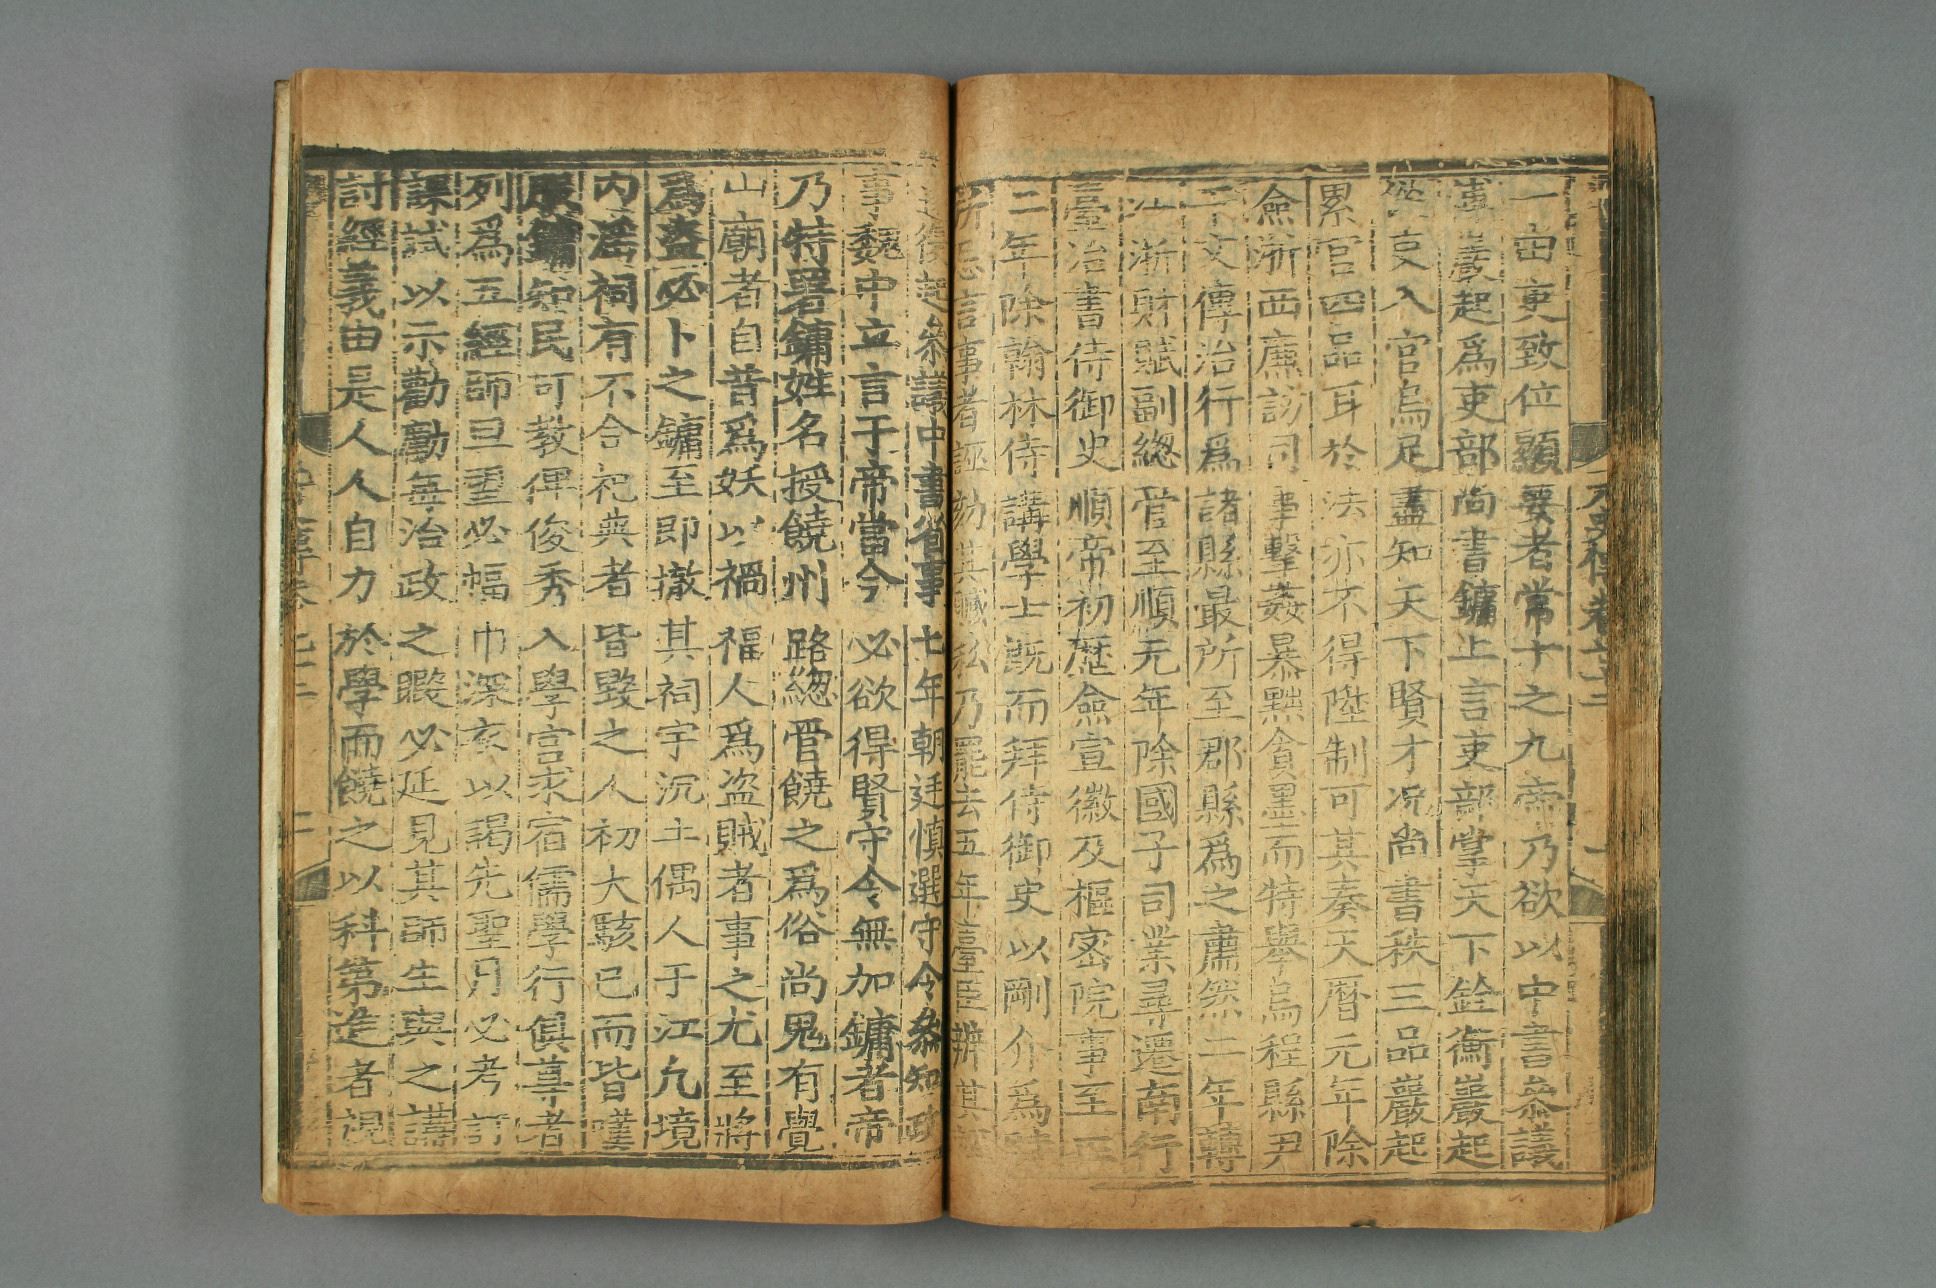 元史列傳卷七十二
一由吏致位顯要者常十之九帝乃欲以中書參議
傅巖起爲吏部尚書鏞上言吏部掌天下銓衡巖起
從吏入官烏足盡知天下賢才況尚書秩三品巖起
累官四品耳於法亦不得陞制可其奏天曆元年除
僉浙西廉訪司事擊姦暴黜貪墨而特舉烏程縣尹
干文傳治行爲諸縣最所至郡縣爲之肅然二年轉
江浙財賦副總管至順元年除國子司業尋遷南行
臺治書侍御史順帝初歷僉宣徽及樞密院事至正
二年除翰林侍講學士既而拜侍御史以剛介爲時
所忌言事者誣劾其贓私乃罷去五年臺臣辨其誣
遂復起參議中書省事七年朝廷愼選守令參知政
事魏中立言于帝當今必欲得賢守令無加鏞者帝
乃特署鏞姓名授饒州路總管饒之爲俗尚鬼有覺
山廟者自昔爲妖以禍福人爲盜賊者事之尤至將
爲盜必卜之鏞至即撤其祠宇沉土偶人于江凡境
內淫祠有不合祀典者皆毀之人初大駭已而皆嘆
服鏞知民可教俾俊秀入學宮求宿儒學行俱尊者
列爲五經師旦望必幅巾深衣以謁先聖月必考訂
課試以示勸勵每治政之暇必延見其師生與之講
討經義由是人人自力於學而饒之以科第進者視